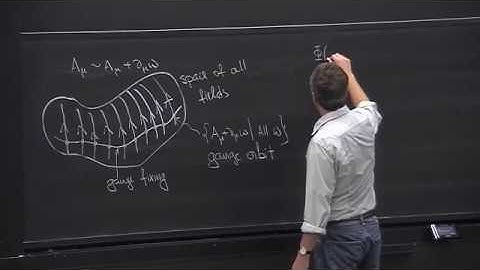 Aμ ~ Aμ + ∂μω
space of all
fields
{Aμ + ∂μω | All ω}
gauge orbit
gauge fixing
Φ(